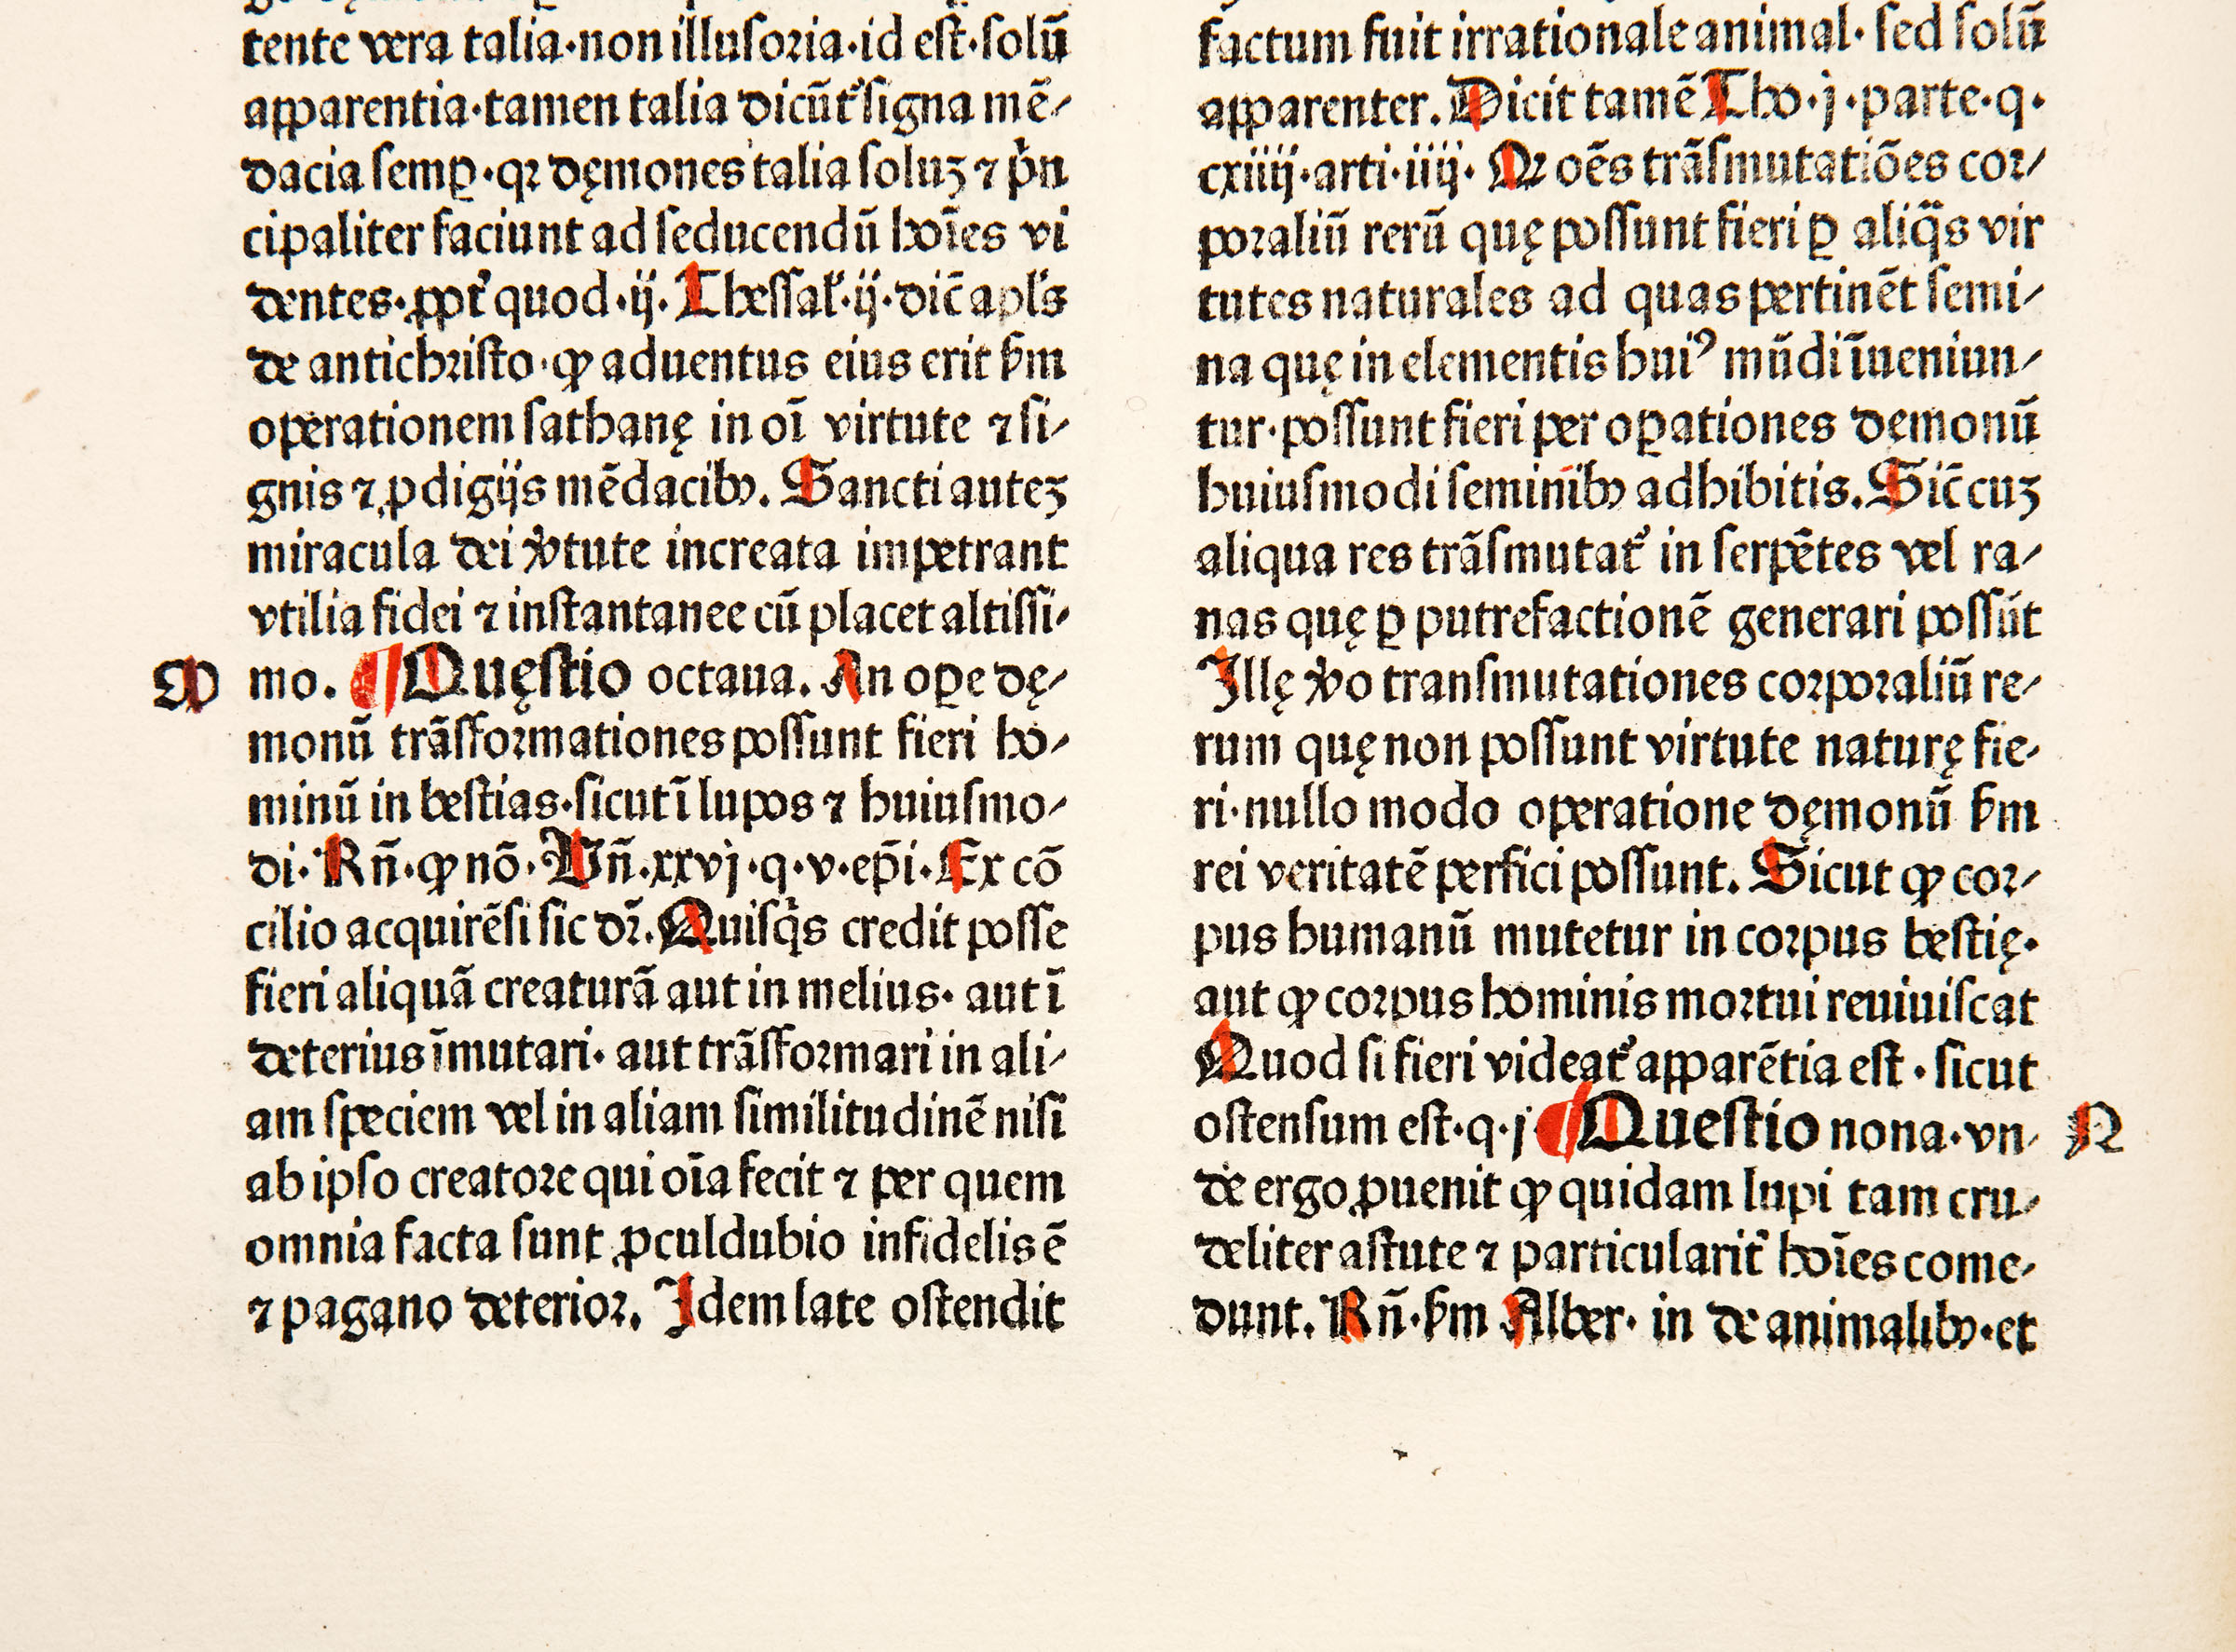 tente vera talia·non illuſoꝛia·id eſt·ſolū
apparentia·tamen talia dicūt᷑ ſigna mē⸗
dacia ſemꝑ·qꝛ dęmones talia ſoluꝫ ⁊ pͥn
cipaliter faciunt ad ſeducendū hoīes vi
dentes·ꝓpt᷑ quod·ij·Theſſal᷑·ij·dic̄ apl᷑s
de antichꝛiſto·ꝙ aduentus eius erit ẜm
operationem ſathanę in oī virtute ⁊ ſi⸗
gnis ⁊ ꝓdigijs mēdacibꝰ. Sancti auteꝫ
miracula dei v̓tute increata impetrant
vtilia fidei ⁊ inſtantanee cū placet altiſſi⸗
M
mo. ¶ Quęſtio octaua. An oꝑe dę⸗
monū trāſfoꝛmationes poſſunt fieri ho⸗
minū in beſtias·ſicut ī lupos ⁊ huiuſmo⸗
di·Rñ·ꝙ nō·Vñ·xxvj·q·v·ep̄i·Ex cō
cilio acquirēſi ſic dꝛ̄. Quiſqͥs credit poſſe
fieri aliquā creaturā aut in melius· aut ī
deterius īmutari· aut trāſfoꝛmari in ali⸗
am ſpeciem vel in aliam ſimilitudinē niſi
ab ipſo creatoꝛe qui oīa fecit ⁊ per quem
omnia facta ſunt ꝓculdubio infidelis ē
⁊ pagano deterioꝛ. Idem late oſtendit
factum fuit irrationale animal· ſed ſolū
apparenter. Dicit tamē Tho·j·parte·q·
cxiiij·arti·iiij· Qꝛ oēs trāſmutatiōes coꝛ⸗
poꝛaliū rerū quę poſſunt fieri ꝑ aliqᷓs vir
tutes naturales ad quas pertinēt ſemi⸗
na quę in elementis huiꝰ mūdi īueniun⸗
tur·poſſunt fieri per oꝑationes dęmonū
huiuſmodi ſeminibꝰ adhibitis. Sic̄ cuꝫ
aliqua res trāſmutat᷑ in ſerpētes vel ra⸗
nas quę ꝑ putrefactionē generari poſſūt
Illę v̓o tranſmutationes coꝛpoꝛaliū re⸗
rum quę non poſſunt virtute naturę fie⸗
ri·nullo modo operatione dęmonū ẜm
rei veritatē perfici poſſunt. Sicut ꝙ coꝛ⸗
pus humanū mutetur in coꝛpus beſtię·
aut ꝙ coꝛpus hominis moꝛtui reuiuiſcat
Quod ſi fieri videat᷑ apparētia eſt·ſicut
oſtenſum eſt·q·j· ¶ Queſtio nona·vn⸗
N
de ergo ꝓuenit ꝙ quidam lupi tam cru⸗
deliter aſtute ⁊ particularit᷑ hoīes come⸗
dunt. Rñ·ẜm Alber· in de animalibꝰ·et